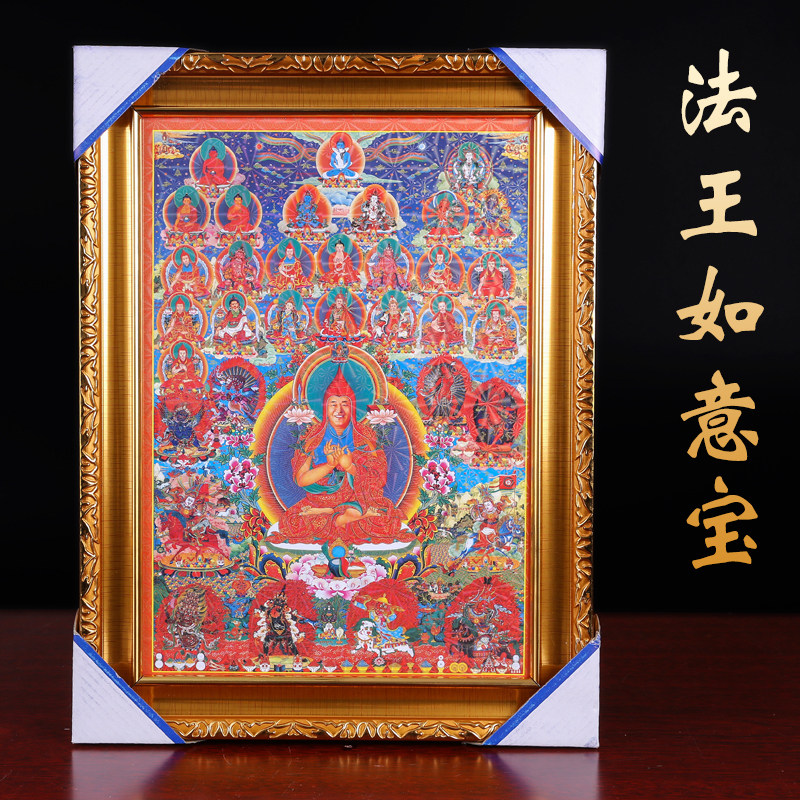 法王如意宝